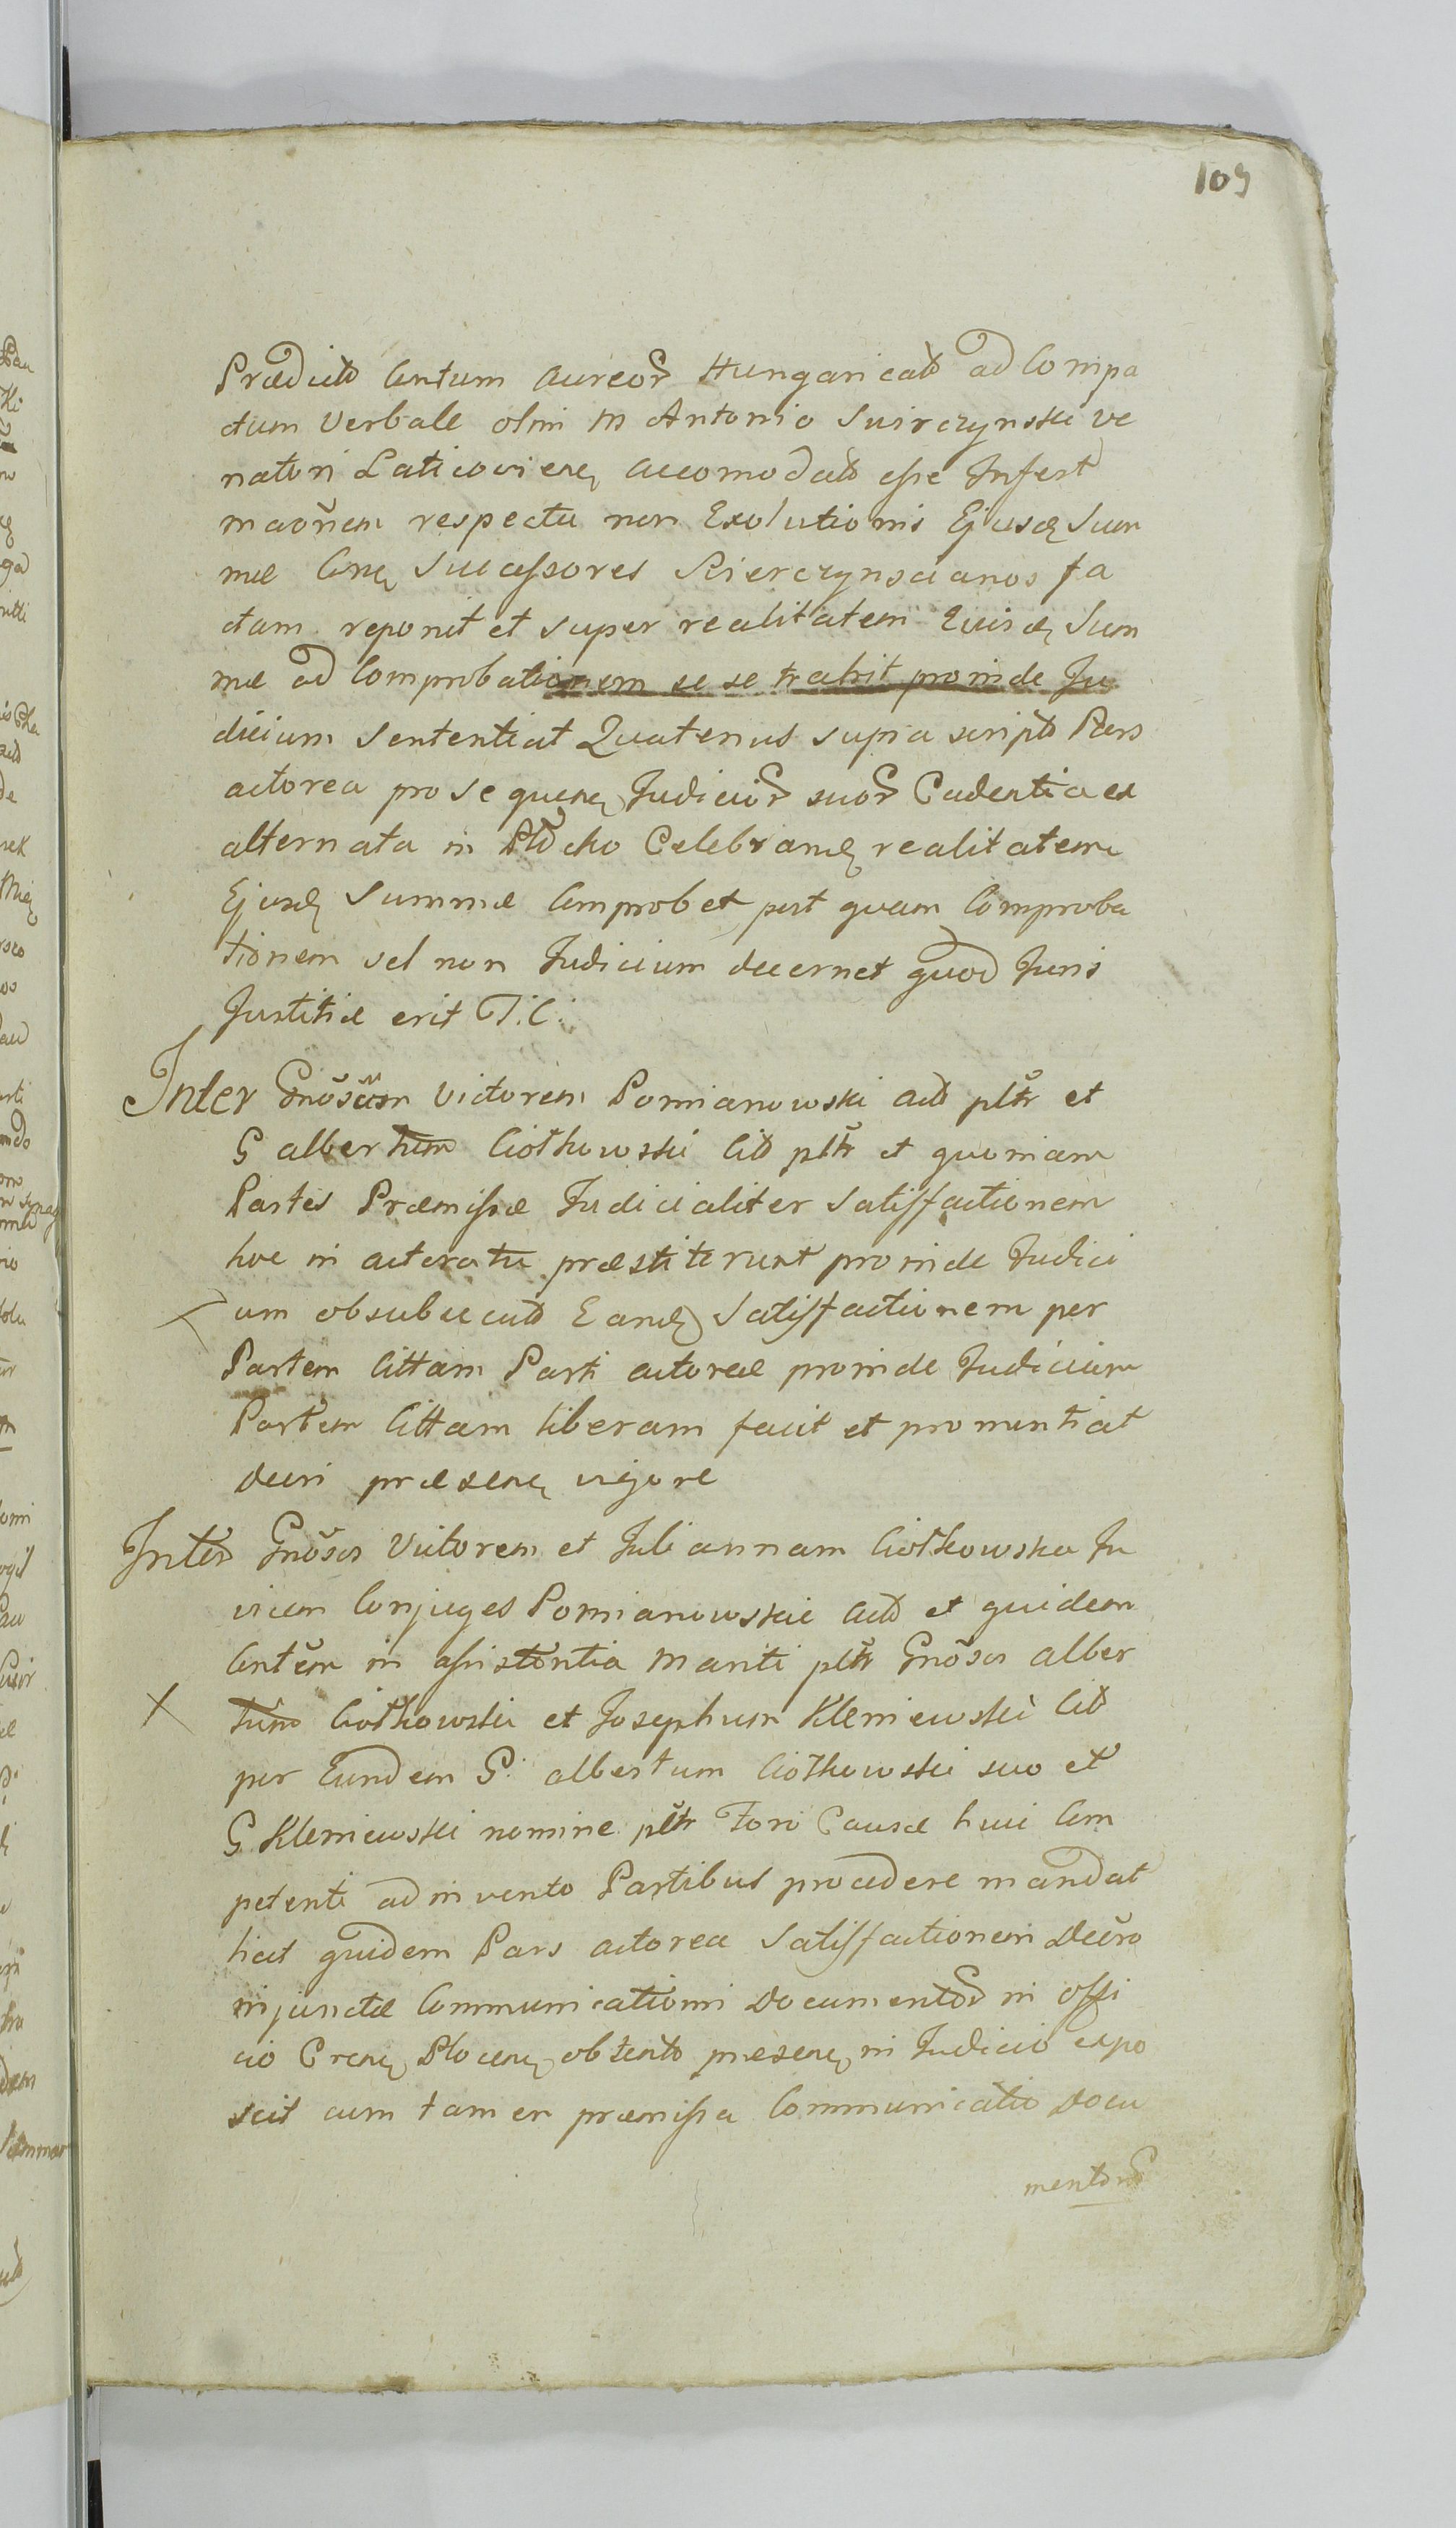 109
Prædicto Centum Aureor Hungaricalo ad Compa
ctum Verbale olim M Antonio Swirczynski ve
natori accomodato esse Infert
maõnem respectu non Exolutionis Ejusdę Sum
mæ Conę Successores fa
ctam reponit et super realitatem Ejusdę Sum
mæ ad Comprobationem se se trahit proinde Ju
dicium Sententiat Quatenus supra script Pars
actorea pro sequenę Judicior suor Cadentia ex
alternata in Celebrandę realitatem
Ejusdę Summæ Comprobet post quam Comproba
tionem vel non Judicium decernet quod Juris
Justitiæ erit T. C.
Inter Gnõsum Victorem Pomianowski act pltr et
G Albertum Ciołkowski Cit pltr et quoniam
Partes Præmissæ Judicialiter Satisfactionem
hoc in actoratu præstiterunt proinde Judici
um ob subsecut Eandę Satisfactionem per
Partem Cittam Parti actoreæ proinde Judicium
Partem Cittam liberam facit et pronuntiat
decri præsenę vigore
Inter Gnõsos Victorem et Juliannam Ciołkowska In
vicem Conjuges Pomianowskie act et quidem
in assistentia Mariti pltr Gnõsos alber
tum Ciołkowski et Josephum Kleniewski Cit
per Eundem G. albertum Ciołkowski suo et
G Kleniewski nomine pltr Fori Causæ huic Com
petenti adinvento Partibus procedere mandat
licet quidem Pars actorea Satisfactionem Decro
injunctæ Communicationi Documentor in offi
cio Crenę Plocenę obtento præsenę in Judicio expo
scit cum tamen præmissa Communicatio Docu
mentor